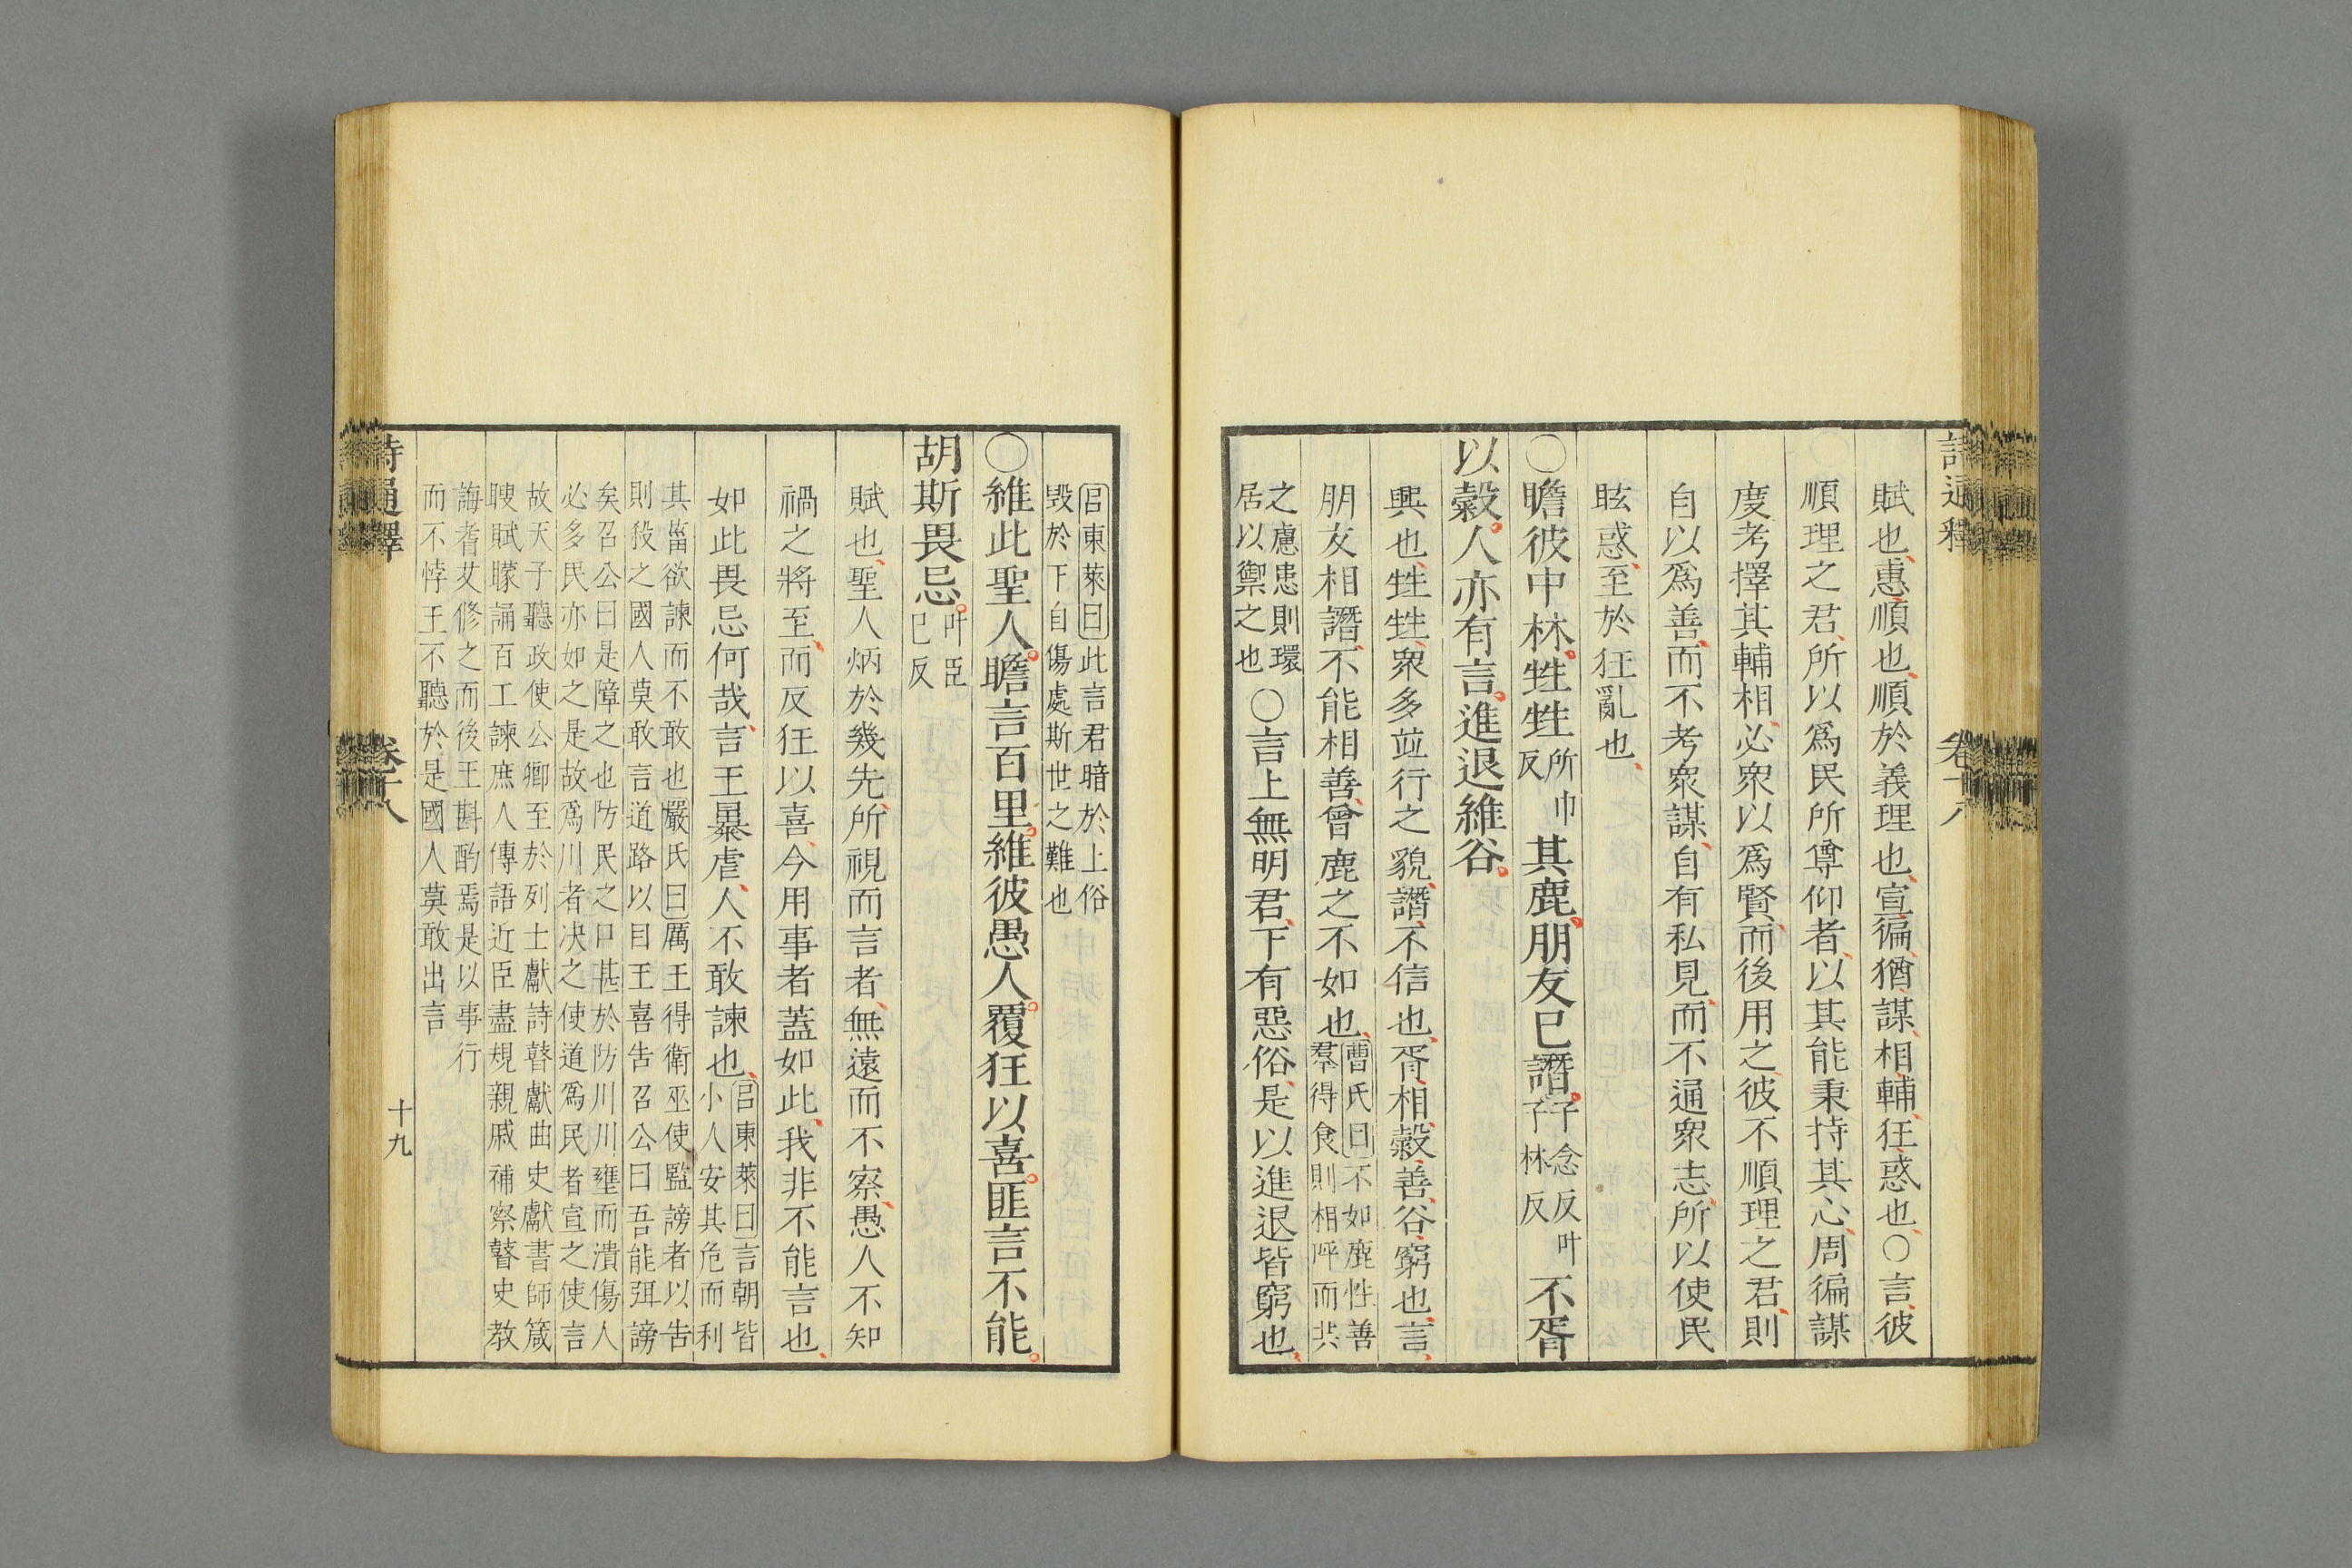 詩通釋
卷十八
賦也惠順也順於義理也宣徧猶謀相輔狂惑也○言彼
順理之君所以爲民所尊仰者以其能秉持其心周徧謀
度考擇其輔相必衆以爲賢而後用之彼不順理之君則
自以爲善而不考衆謀自有私見而不通衆志所以使民
眩惑至於狂亂也
○瞻彼中林甡甡所巾反其鹿朋友已譖子念反叶子林反不胥
以穀人亦有言進退維谷
興也甡甡衆多並行之貌譖不信也胥相穀善谷窮也言
朋友相譖不能相善曾鹿之不如也曹氏曰不如鹿性善羣得食則相呼而共
之慮患則環居以禦之也○言上無明君下有惡俗是以進退皆窮也
呂東萊曰此言君暗於上俗
毀於下自傷處斯世之難也
○維此聖人瞻言百里維彼愚人覆狂以喜匪言不能
胡斯畏忌叶巨己反
賦也聖人炳於幾先所視而言者無遠而不察愚人不知
禍之將至而反狂以喜今用事者蓋如此我非不能言也
如此畏忌何哉言王暴虐人不敢諫也呂東萊曰言朝皆小人安其危而利
其菑欲諫而不敢也嚴氏曰厲王得衛巫使監謗者以告
則殺之國人莫敢言道路以目王喜告召公曰吾能弭謗
矣召公曰是障之也防民之口甚於防川川壅而潰傷人
必多民亦如之是故爲川者决之使道爲民者宣之使言
故天子聽政使公卿至於列士獻詩瞽獻曲史獻書師箴
瞍賦矇誦百工諫庶人傳語近臣盡規親戚補察瞽史教
誨耆艾修之而後王斟酌焉是以事行
而不悖王不聽於是國人莫敢出言
詩通釋
卷十八
十九